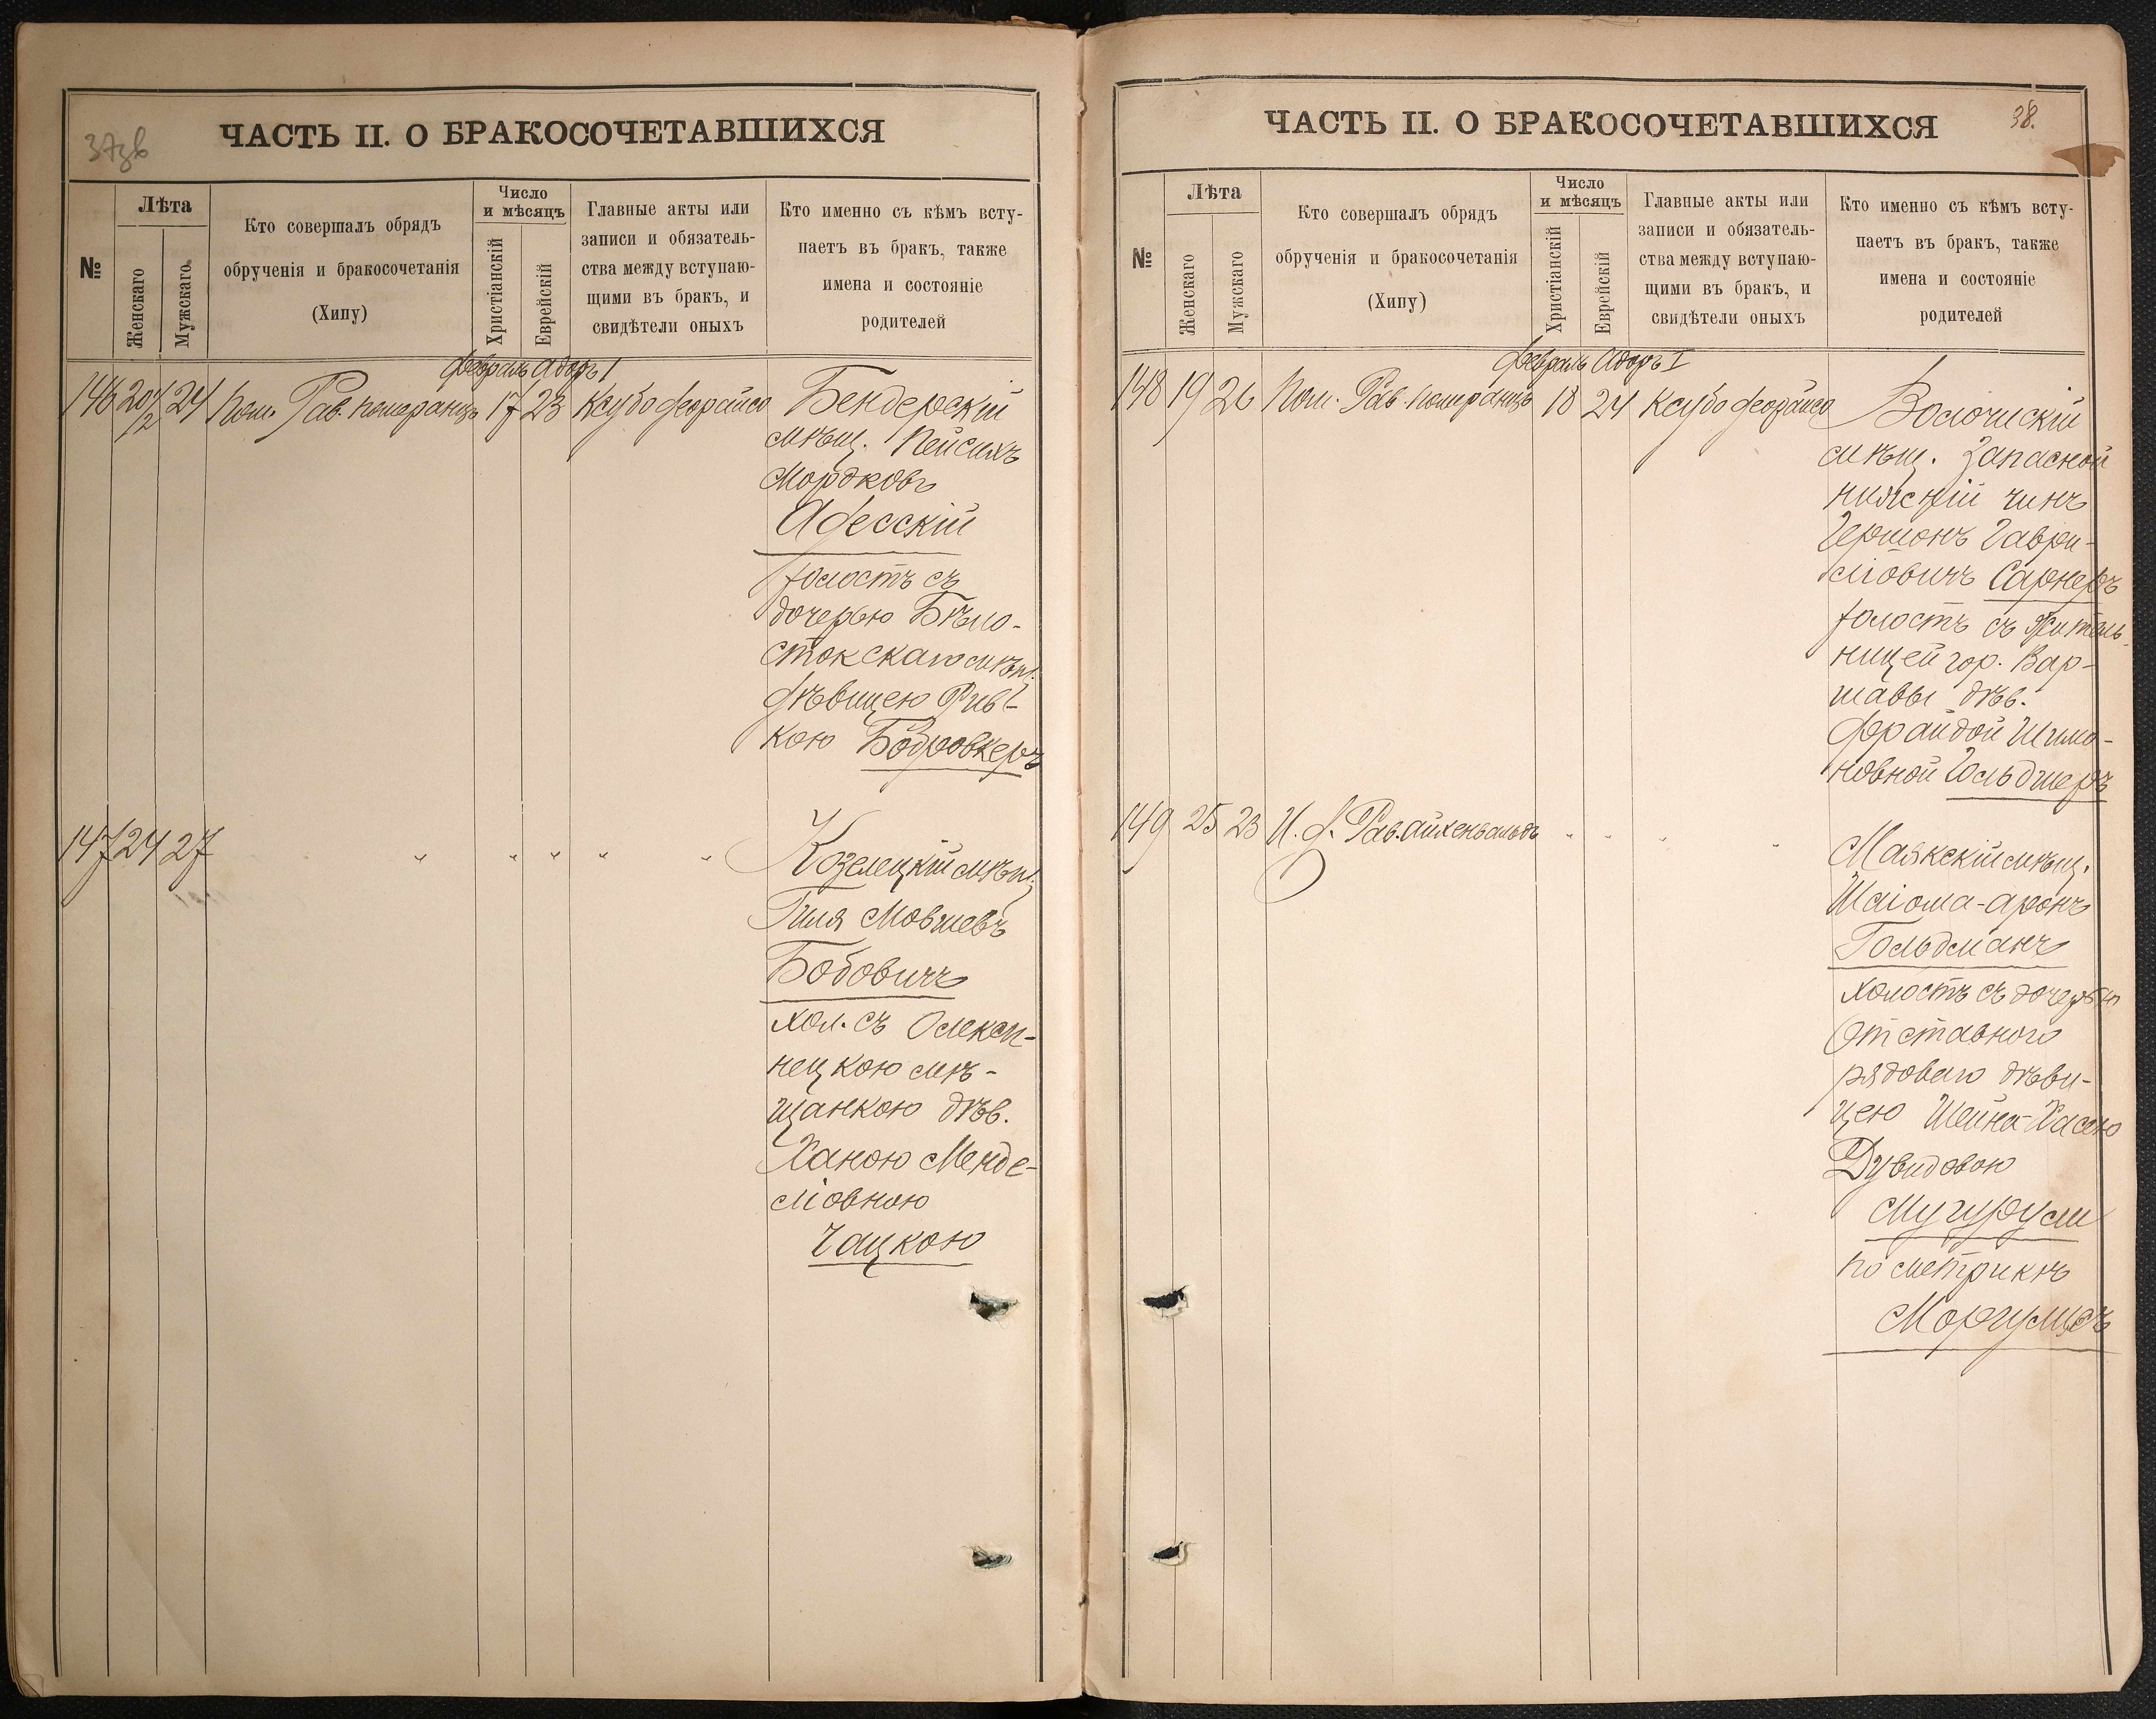 37зв
ЧАСТЬ II. О БРАКОСОЧЕТАВШИХСЯ
№
Лѣта
Женскаго
Мужскаго
Кто совершалъ обрядъ
обрученія и бракосочетанія
(Хипу)
Число
и мѣсяцъ
Христіанскій
Еврейскій
Главные акты или
записи и обязатель-
ства между вступаю-
щими въ бракъ, и
свидѣтели оныхъ
Кто именно съ кѣмъ всту-
паетъ въ бракъ, также
имена и состояніе
родителей
Февраль Адоръ I
146 20 1/2 24 Пом. Рав. Померанцъ 17 23 Ксубо Феорайсо
Бендерскій
мѣщ. Пейсихъ
Мордковъ
Адесскій
холостъ съ
дочерью Бѣло-
стокскаго мѣщ.
дѣвицею Рив-
кою Бобровкеръ
147 24 27 " " " " " "
Козелецкій мѣщ.
Гиля Мовшевъ
Бобовичъ
хол. съ Олексан-
нецкою мѣ-
щанкою дѣв.
Ханою Менде-
ліовною
Чацкою
38.
ЧАСТЬ II. О БРАКОСОЧЕТАВШИХСЯ
№
Лѣта
Женскаго
Мужскаго
Кто совершалъ обрядъ
обрученія и бракосочетанія
(Хипу)
Число
и мѣсяцъ
Христіанскій
Еврейскій
Главные акты или
записи и обязатель-
ства между вступаю-
щими въ бракъ, и
свидѣтели оныхъ
Кто именно съ кѣмъ всту-
паетъ въ бракъ, также
имена и состояніе
родителей
Февраль Адоръ I
148 19 26 Пом. Рав. Померанцъ 18 24 Ксубо Феорайсо
Волочискій
мѣщ. Запасной
нижній чинъ
Гершонъ Гаври-
ліовичъ Сарнеръ
холостъ съ Житель-
ницей гор. Вар-
шавы дѣв.
Фрайдой Шимо-
новной Гольдшеръ
149 25 23 И. д. Рав. Айхенвальдъ " " " "
Маякскій мѣщ.
Шаіома-Аронъ
Гольдманъ
холостъ съ дочерью
Отставного
рядоваго дѣви-
цею Шейна-Хасею
Дувидовою
Мугурули
по метрикѣ
Моргулисъ